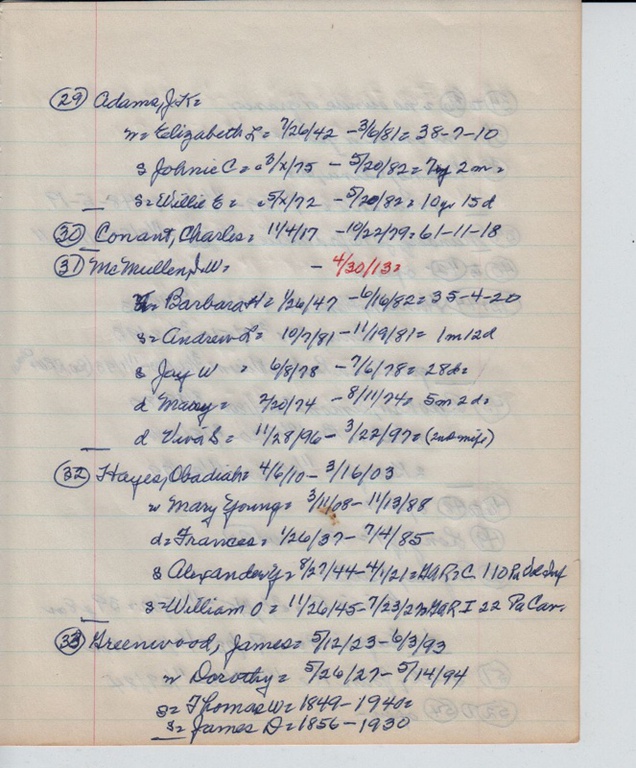 (29) Adams, J.K=
w= Elizabeth L= 7/26/42 - 3/6/81= 38-7-10
s Johnie C= 3/x/75 - 5/20/82= 7y 2m=
s= Willie E= 5/x/72 - 5/20/82= 10yr 15d
(30) Conant, Charles= 11/4/17 - 10/22/79= 61-11-18
(31) McMullen, J.W= - 4/30/13=
w= Barbara H= 1/26/47 - 6/16/82= 35-4-20
s= Andrew L= 10/7/81 - 11/19/81= 1m 12d
s Jay W = 6/8/78 - 7/6/78= 28d=
d Macey= 2/20/74 - 8/11/74= 5m 2d=
d Viva S= 11/28/96 - 3/22/97= (2nd wife)
(32) Hayes, Obadiah= 4/6/10 - 3/16/03
w Mary Young= 3/11/08 - 11/13/88
d= Frances= 1/26/37 - 7/4/85
s Alexander Y= 8/27/44 - 4/1/21= GAR= C 110 Pa Vol Inf
s= William O= 11/26/45 - 7/23/23 GAR I 22 Pa Cav.
(33) Greenwood, James= 5/12/23 - 6/3/93
w Dorothy= 5/26/27 - 5/14/94
s= Thomas W= 1849 - 1940=
s= James D= 1856 - 1930